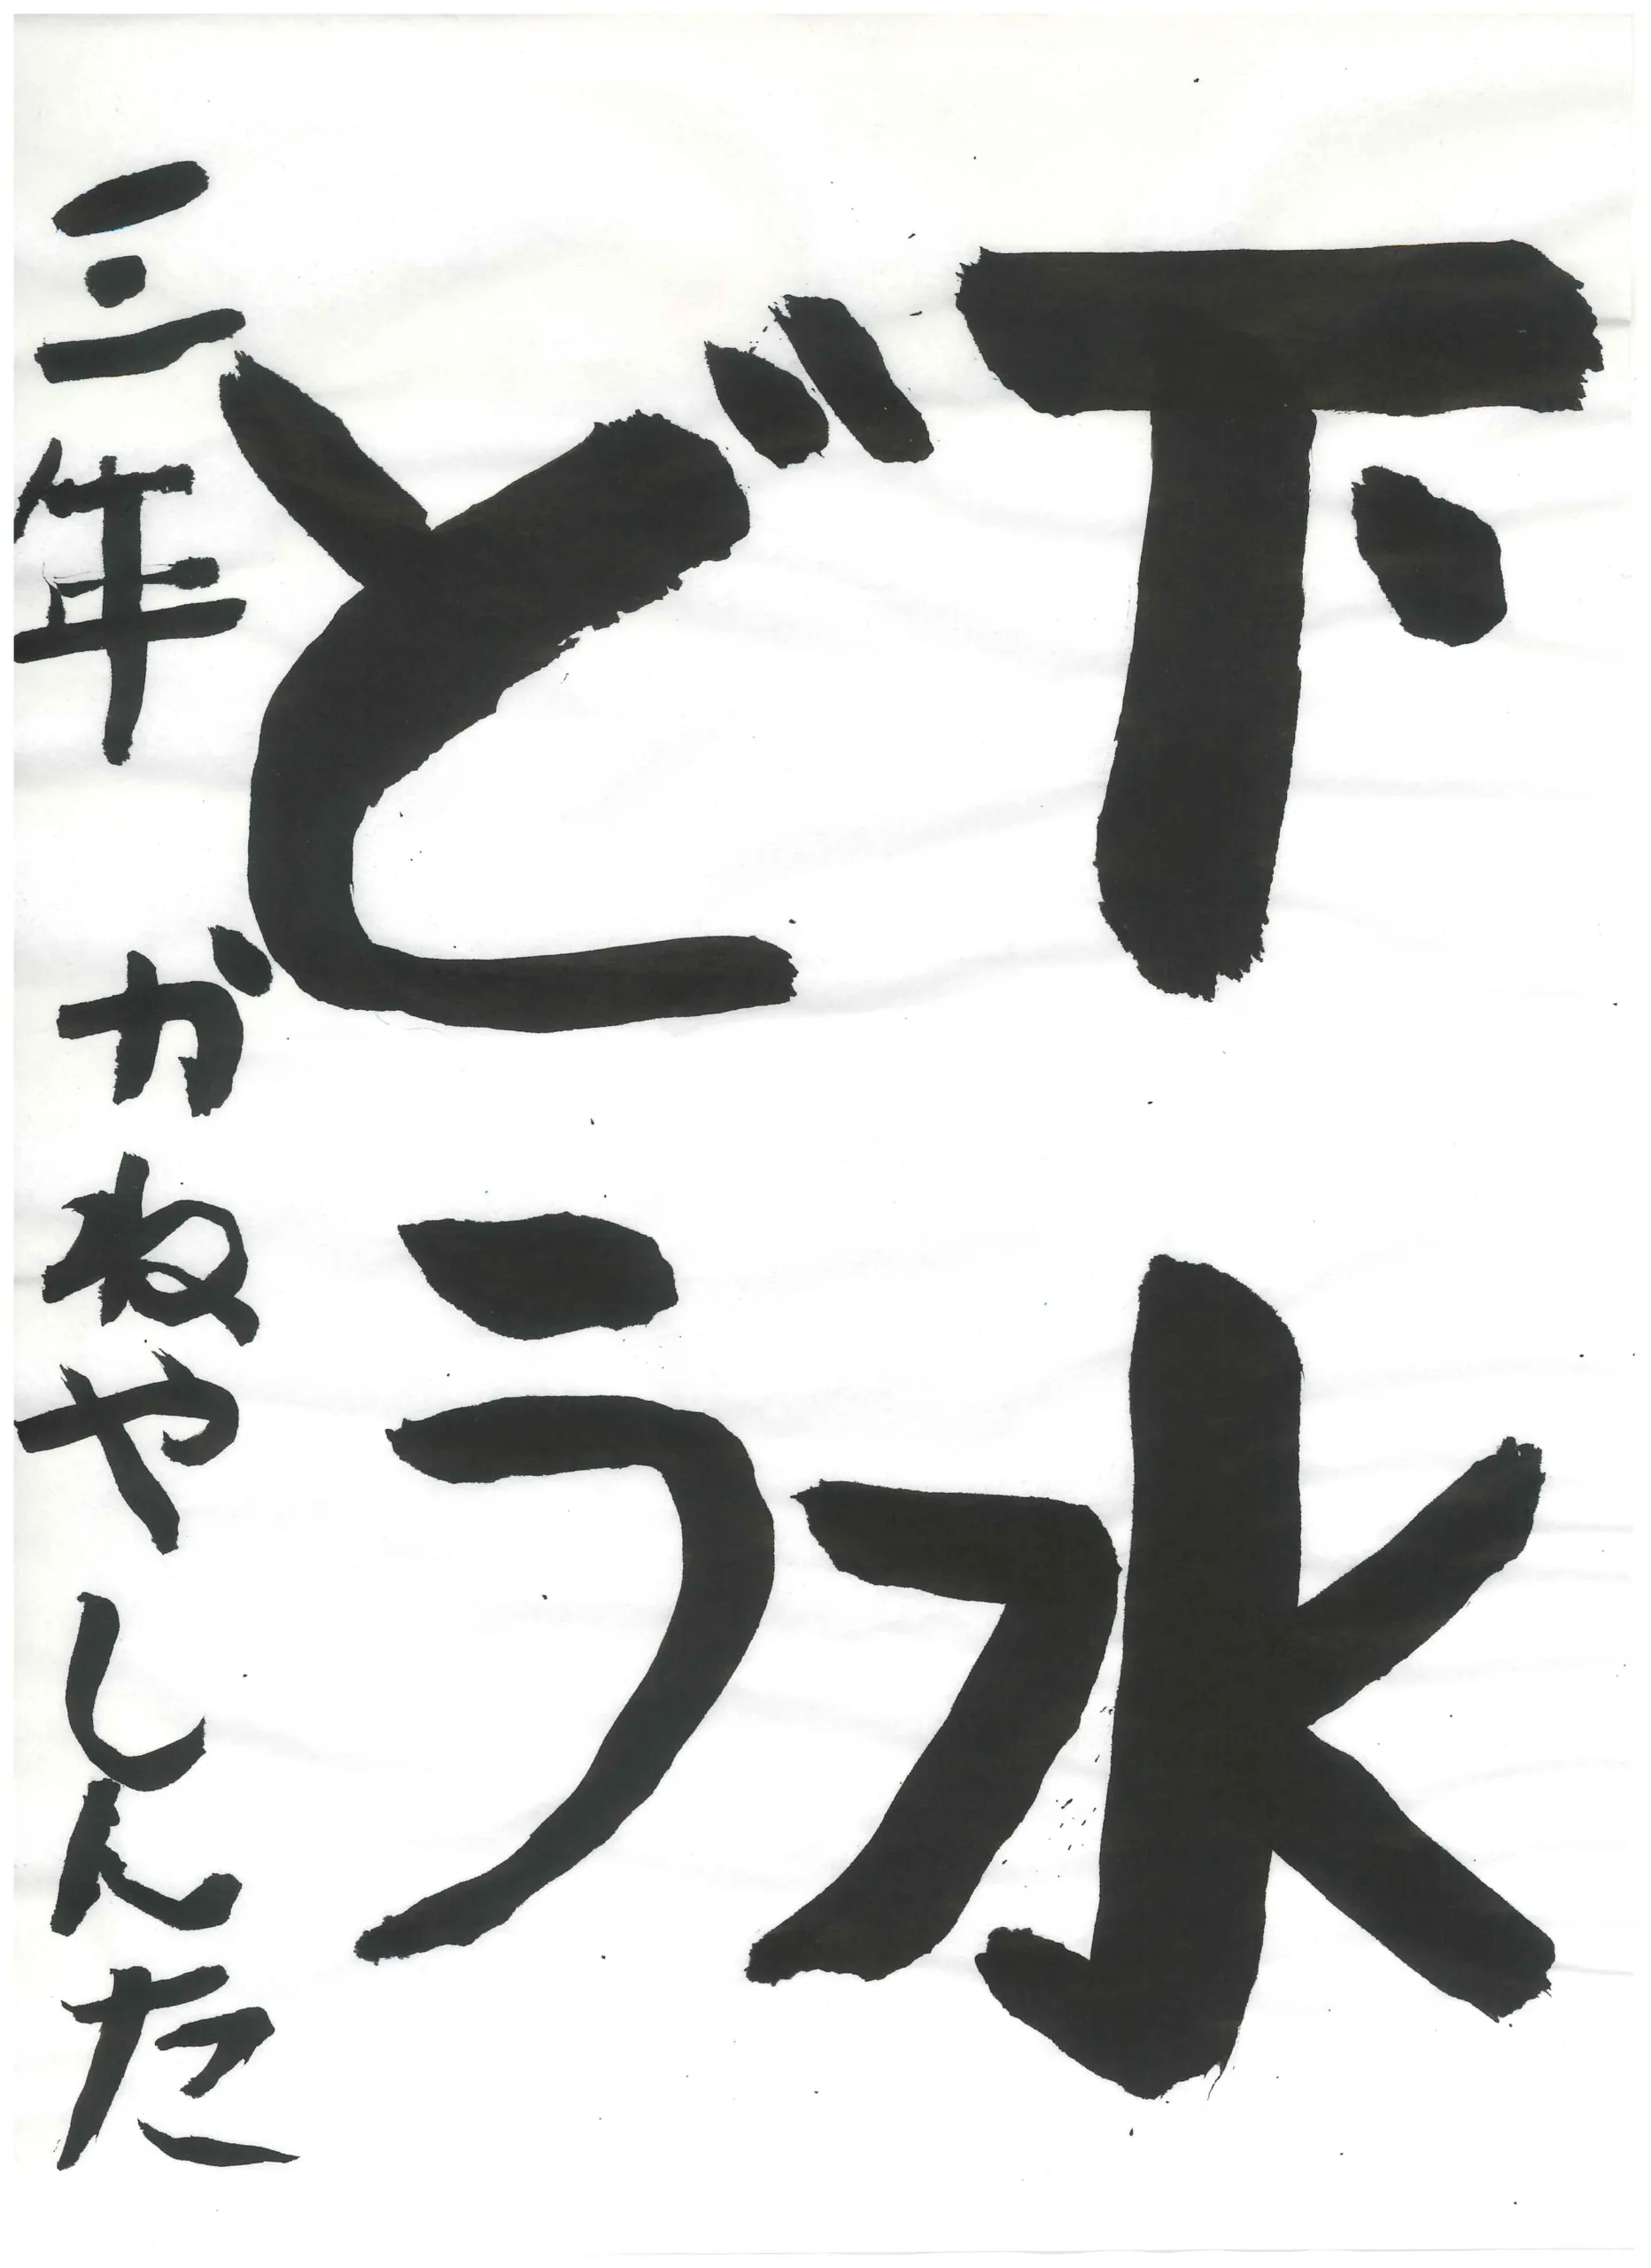 下水
どう
三年 かねや しんた